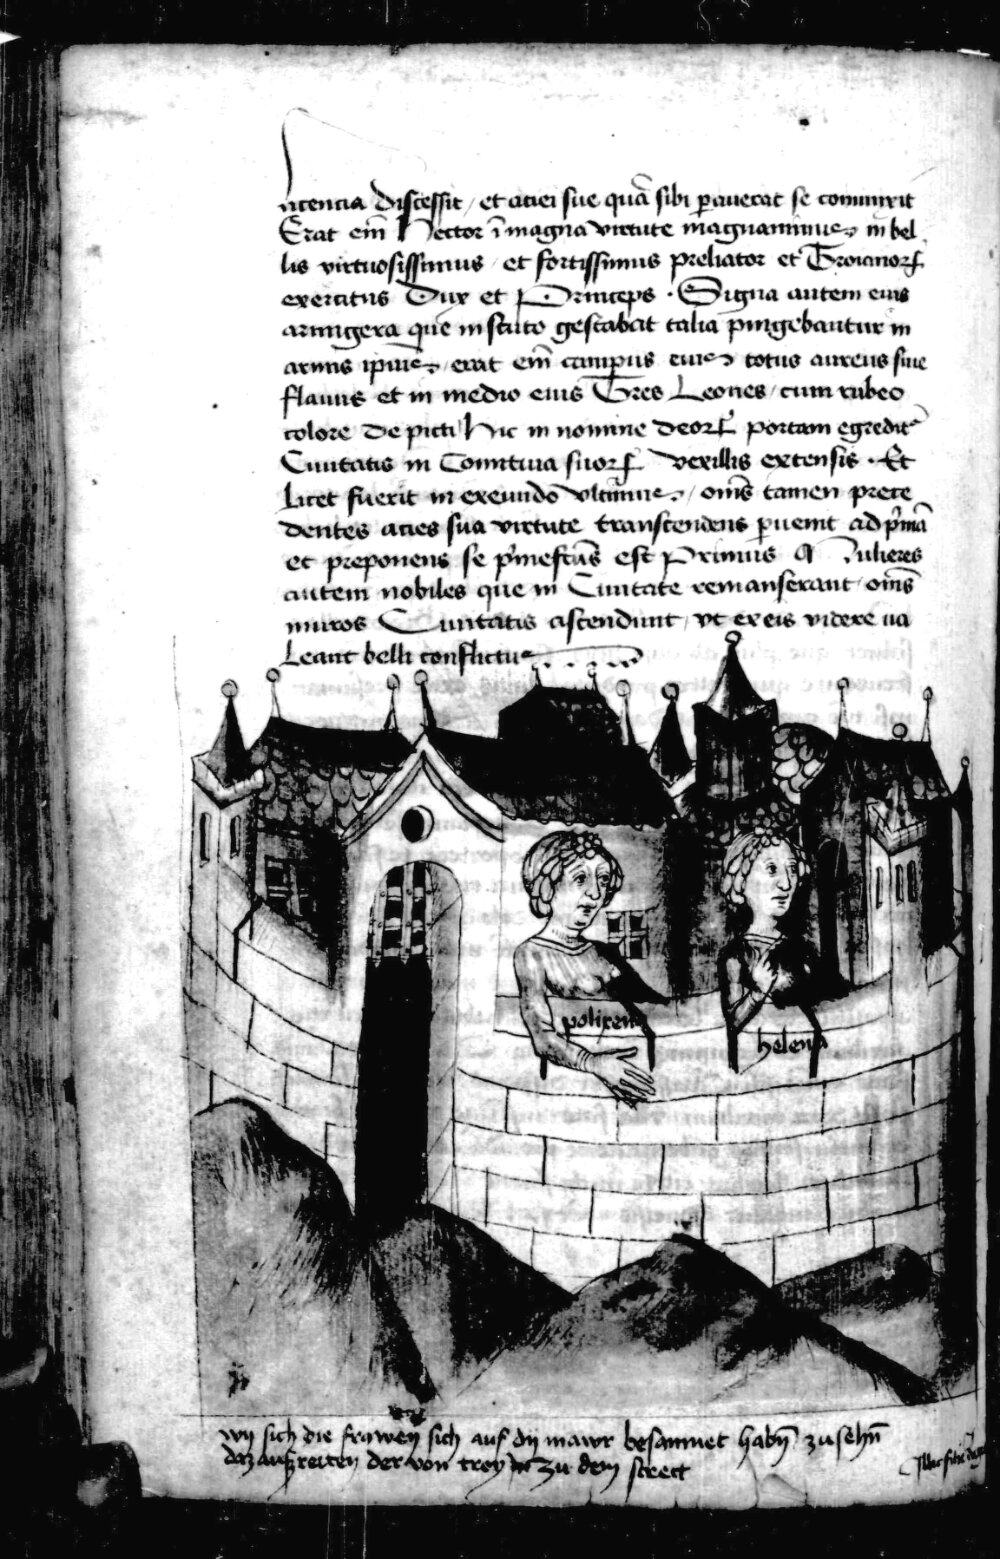 licencia discessit / et aciei sue quā sibi parauerat se coniunxit
Erat em̄ Hector ī magna virtute magnanimus in bel
lis virtuosissimus / et fortissimus preliator et Troianorꝝ
exercitus Dux et Princeps · Signa autem eius
armigera que in scuto gestabat talia pingebantur in
armis ipius / erat em̄ campus eius totus aureus siue
flauus et in medio eius Tres Leones / cum rubeo
colore depicti Hic in nomine deorꝝ portam egredit᷑
Ciuitatis in Comitiua suorꝝ vexillis extensis · Et
licet fuerit in exeundo vltimus / om̄s tamen prece
dentes acies sua virtute transcendens ꝑuenit ad p̄mā
et preponens se
est Primus Mulieres
autem nobiles que in Ciuitate remanserant / om̄s
muros Ciuitatis ascendunt / vt ex eis videre va
leant belli conflictus
polixena
helena
wy sich die frawen sich auf dy mawr besammet habn̄ zu sehn̄
daz aufzreiten der von troy zu dem street